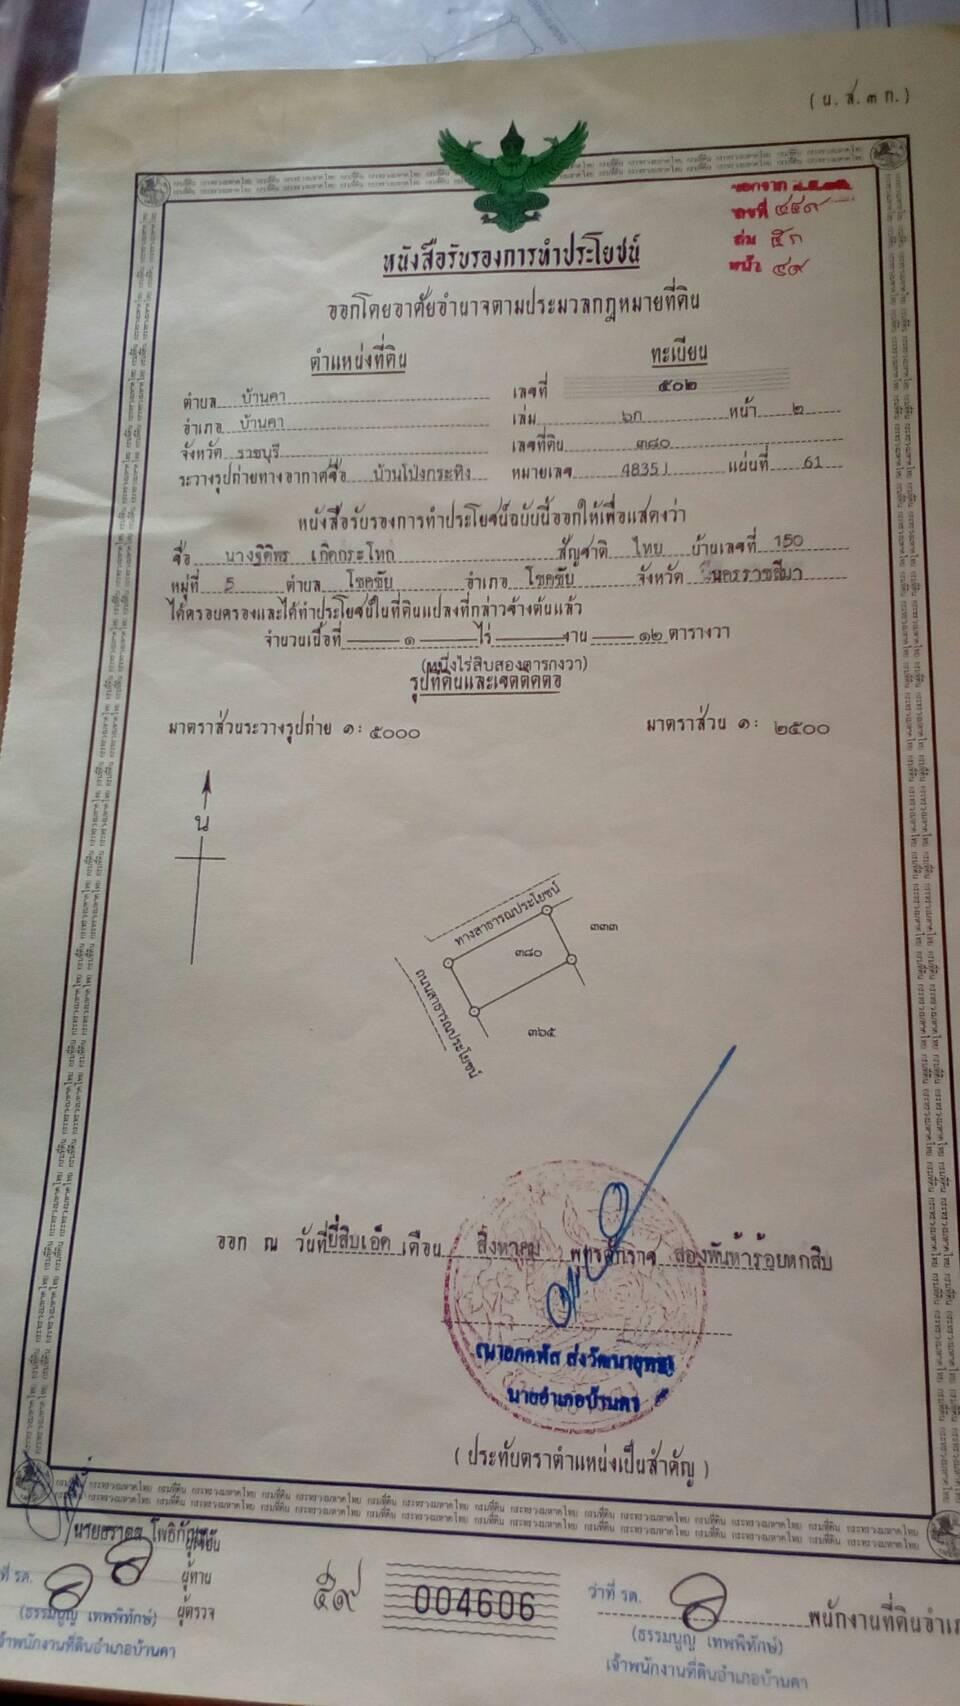 (น.ส.๓ ก.)
ออกจาก
เลขที่ ๔๔๙
เล่ม ๕ก
หน้า ๔๙
หนังสือรับรองการทำประโยชน์
ออกโดยอาศัยอำนาจตามประมวลกฎหมายที่ดิน
ตำแหน่งที่ดิน ทะเบียน
ตำบล บ้านคา เลขที่ ๕๐๒
อำเภอ บ้านคา เล่ม ๖ก หน้า ๒
จังหวัด ราชบุรี เลขที่ดิน ๓๘๐
ระวางรูปถ่ายทางอากาศชื่อ บ้านโป่งกระทิง หมายเลข 4835 I แผ่นที่ 61
หนังสือรับรองการทำประโยชน์ฉบับนี้ออกให้เพื่อแสดงว่า
ชื่อ นางฐิติพร เกิดกระโทก สัญชาติ ไทย บ้านเลขที่ 150
หมู่ที่ 5 ตำบล โชคชัย อำเภอ โชคชัย จังหวัด นครราชสีมา
ได้ครอบครองและได้ทำประโยชน์ในที่ดินแปลงที่กล่าวข้างต้นแล้ว
จำนวนเนื้อที่ ๑ ไร่ งาน ๑๒ ตารางวา
(หนึ่งไร่สิบสองตารางวา)
รูปที่ดินและเขตติดต่อ
มาตราส่วนระวางรูปถ่าย ๑: ๕๐๐๐ มาตราส่วน ๑: ๒๕๐๐
น
ทางสาธารณประโยชน์
๓๓๓
๓๘๐
ถนนสาธารณประโยชน์
๓๖๕
ออก ณ วันที่ ยี่สิบเอ็ด เดือน สิงหาคม พุทธศักราช สองพันห้าร้อยหกสิบ
นายอำเภอบ้านคา
(ประทับตราตำแหน่งเป็นสำคัญ)
ผู้เขียน
ผู้ทาน
ว่าที่ รต. ผู้ตรวจ
(ธรรมบูญ เทพพิทักษ์)
เจ้าพนักงานที่ดินอำเภอบ้านคา
๕๙
004606
ว่าที่ รต. พนักงานที่ดินอำเภ
(ธรรมบูญ เทพพิทักษ์)
เจ้าพนักงานที่ดินอำเภอบ้านคา